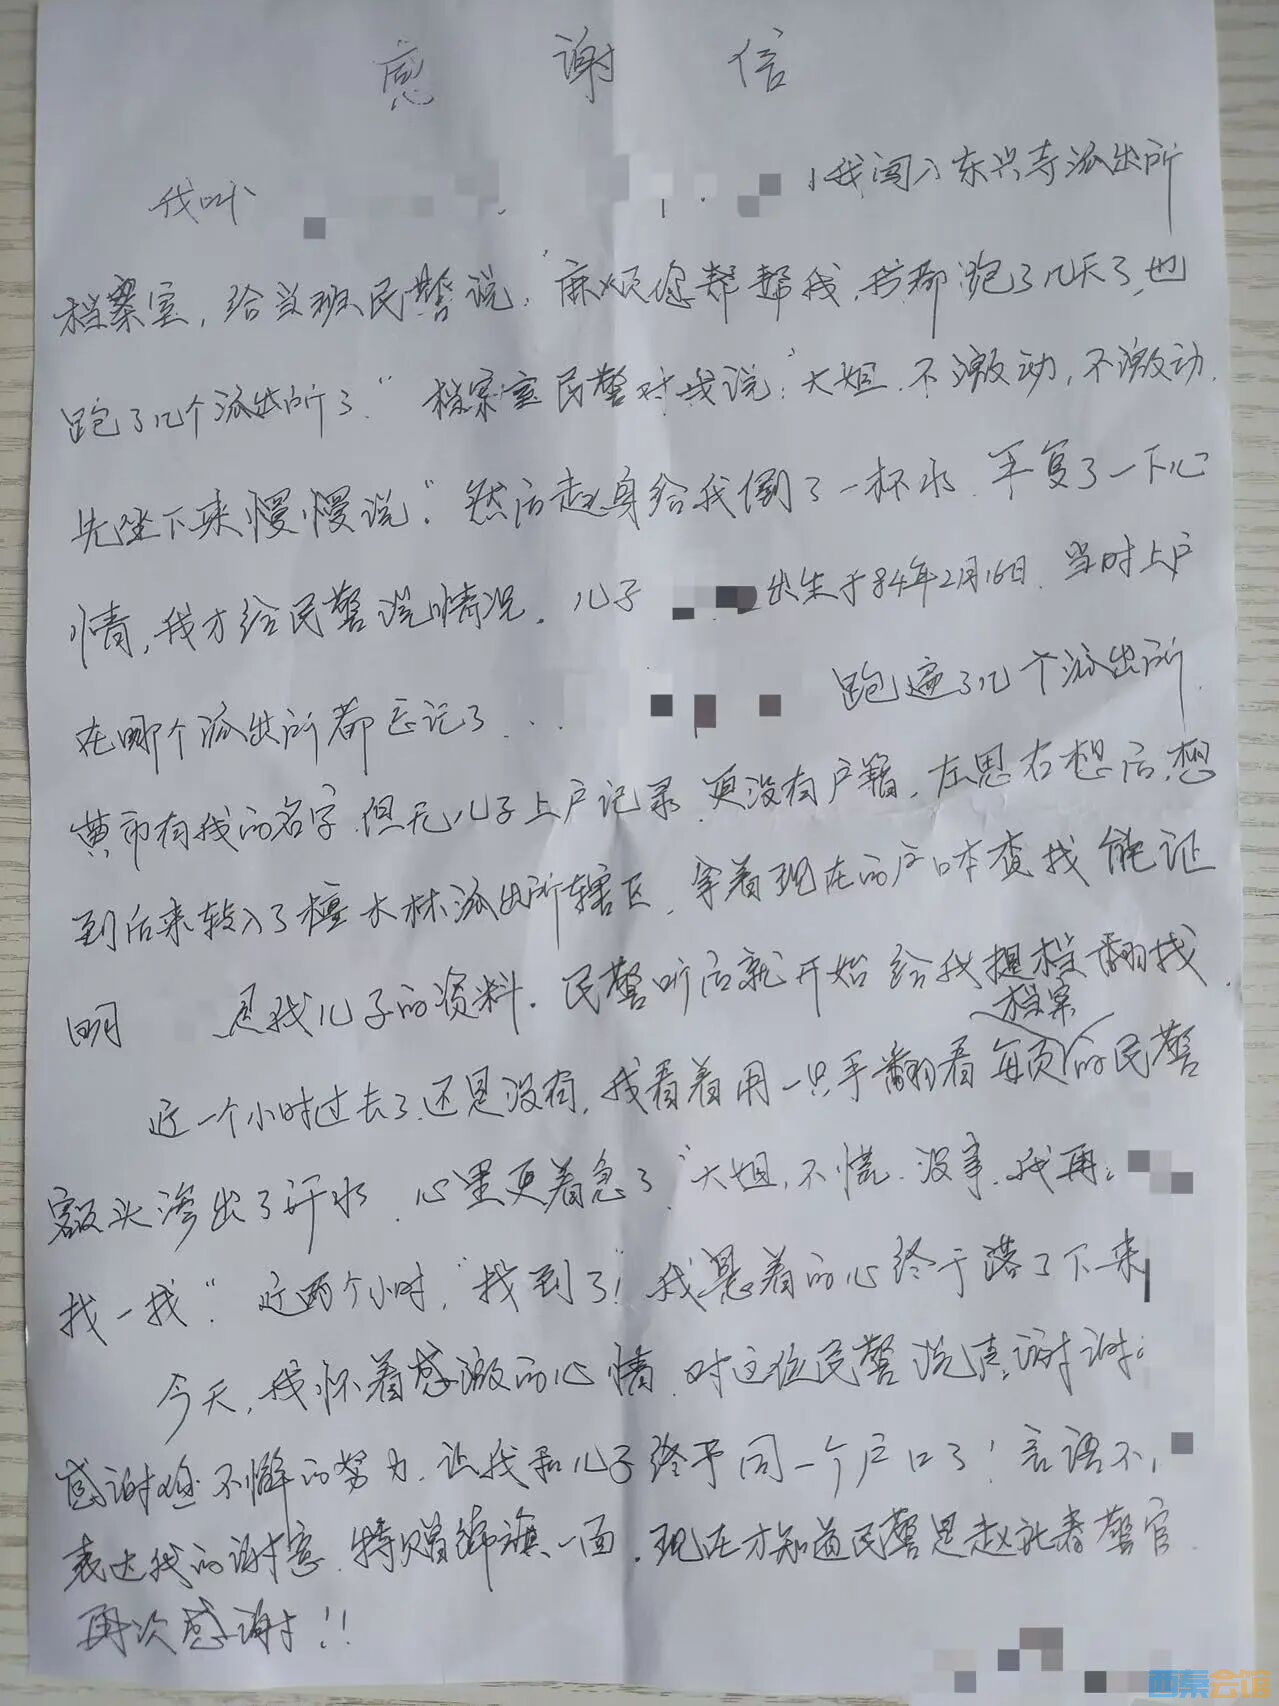 感谢信
我叫 我闯入东兴寺派出所
档案室，给当班民警说，“麻烦您帮帮我，我都跑了几天了，也
跑了几个派出所了”档案室民警对我说：“大姐，不激动，不激动，
先坐下来慢慢说”。然后起身给我倒了一杯水，平复了一下心
情，我才给民警说情况。儿子 出生于84年2月16日，当时上户
在哪个派出所都忘记了 跑遍了几个派出所，
黄市有我的名字，但无儿子上户记录，更没有户籍，左思右想后，想
到后来转入了檀木林派出所辖区，拿着现在的户口本查找能证
明 是我儿子的资料。民警听后就开始给我提档翻找，
近一个小时过去了，还是没有，我看着用一只手翻看每页档案的民警
额头渗出了汗水，心里更着急了“大姐，不慌，没事，我再
找一找”。近两个小时，“找到了！”我悬着的心终于落了下来
今天，我怀着感激的心情，对这位民警说声：谢谢
感谢您不懈的努力，让我和儿子终于同一个户口了！言语不
表达我的谢意，特赠锦旗一面，现在才知道民警是赵 警官
再次感谢！！
西秦会馆